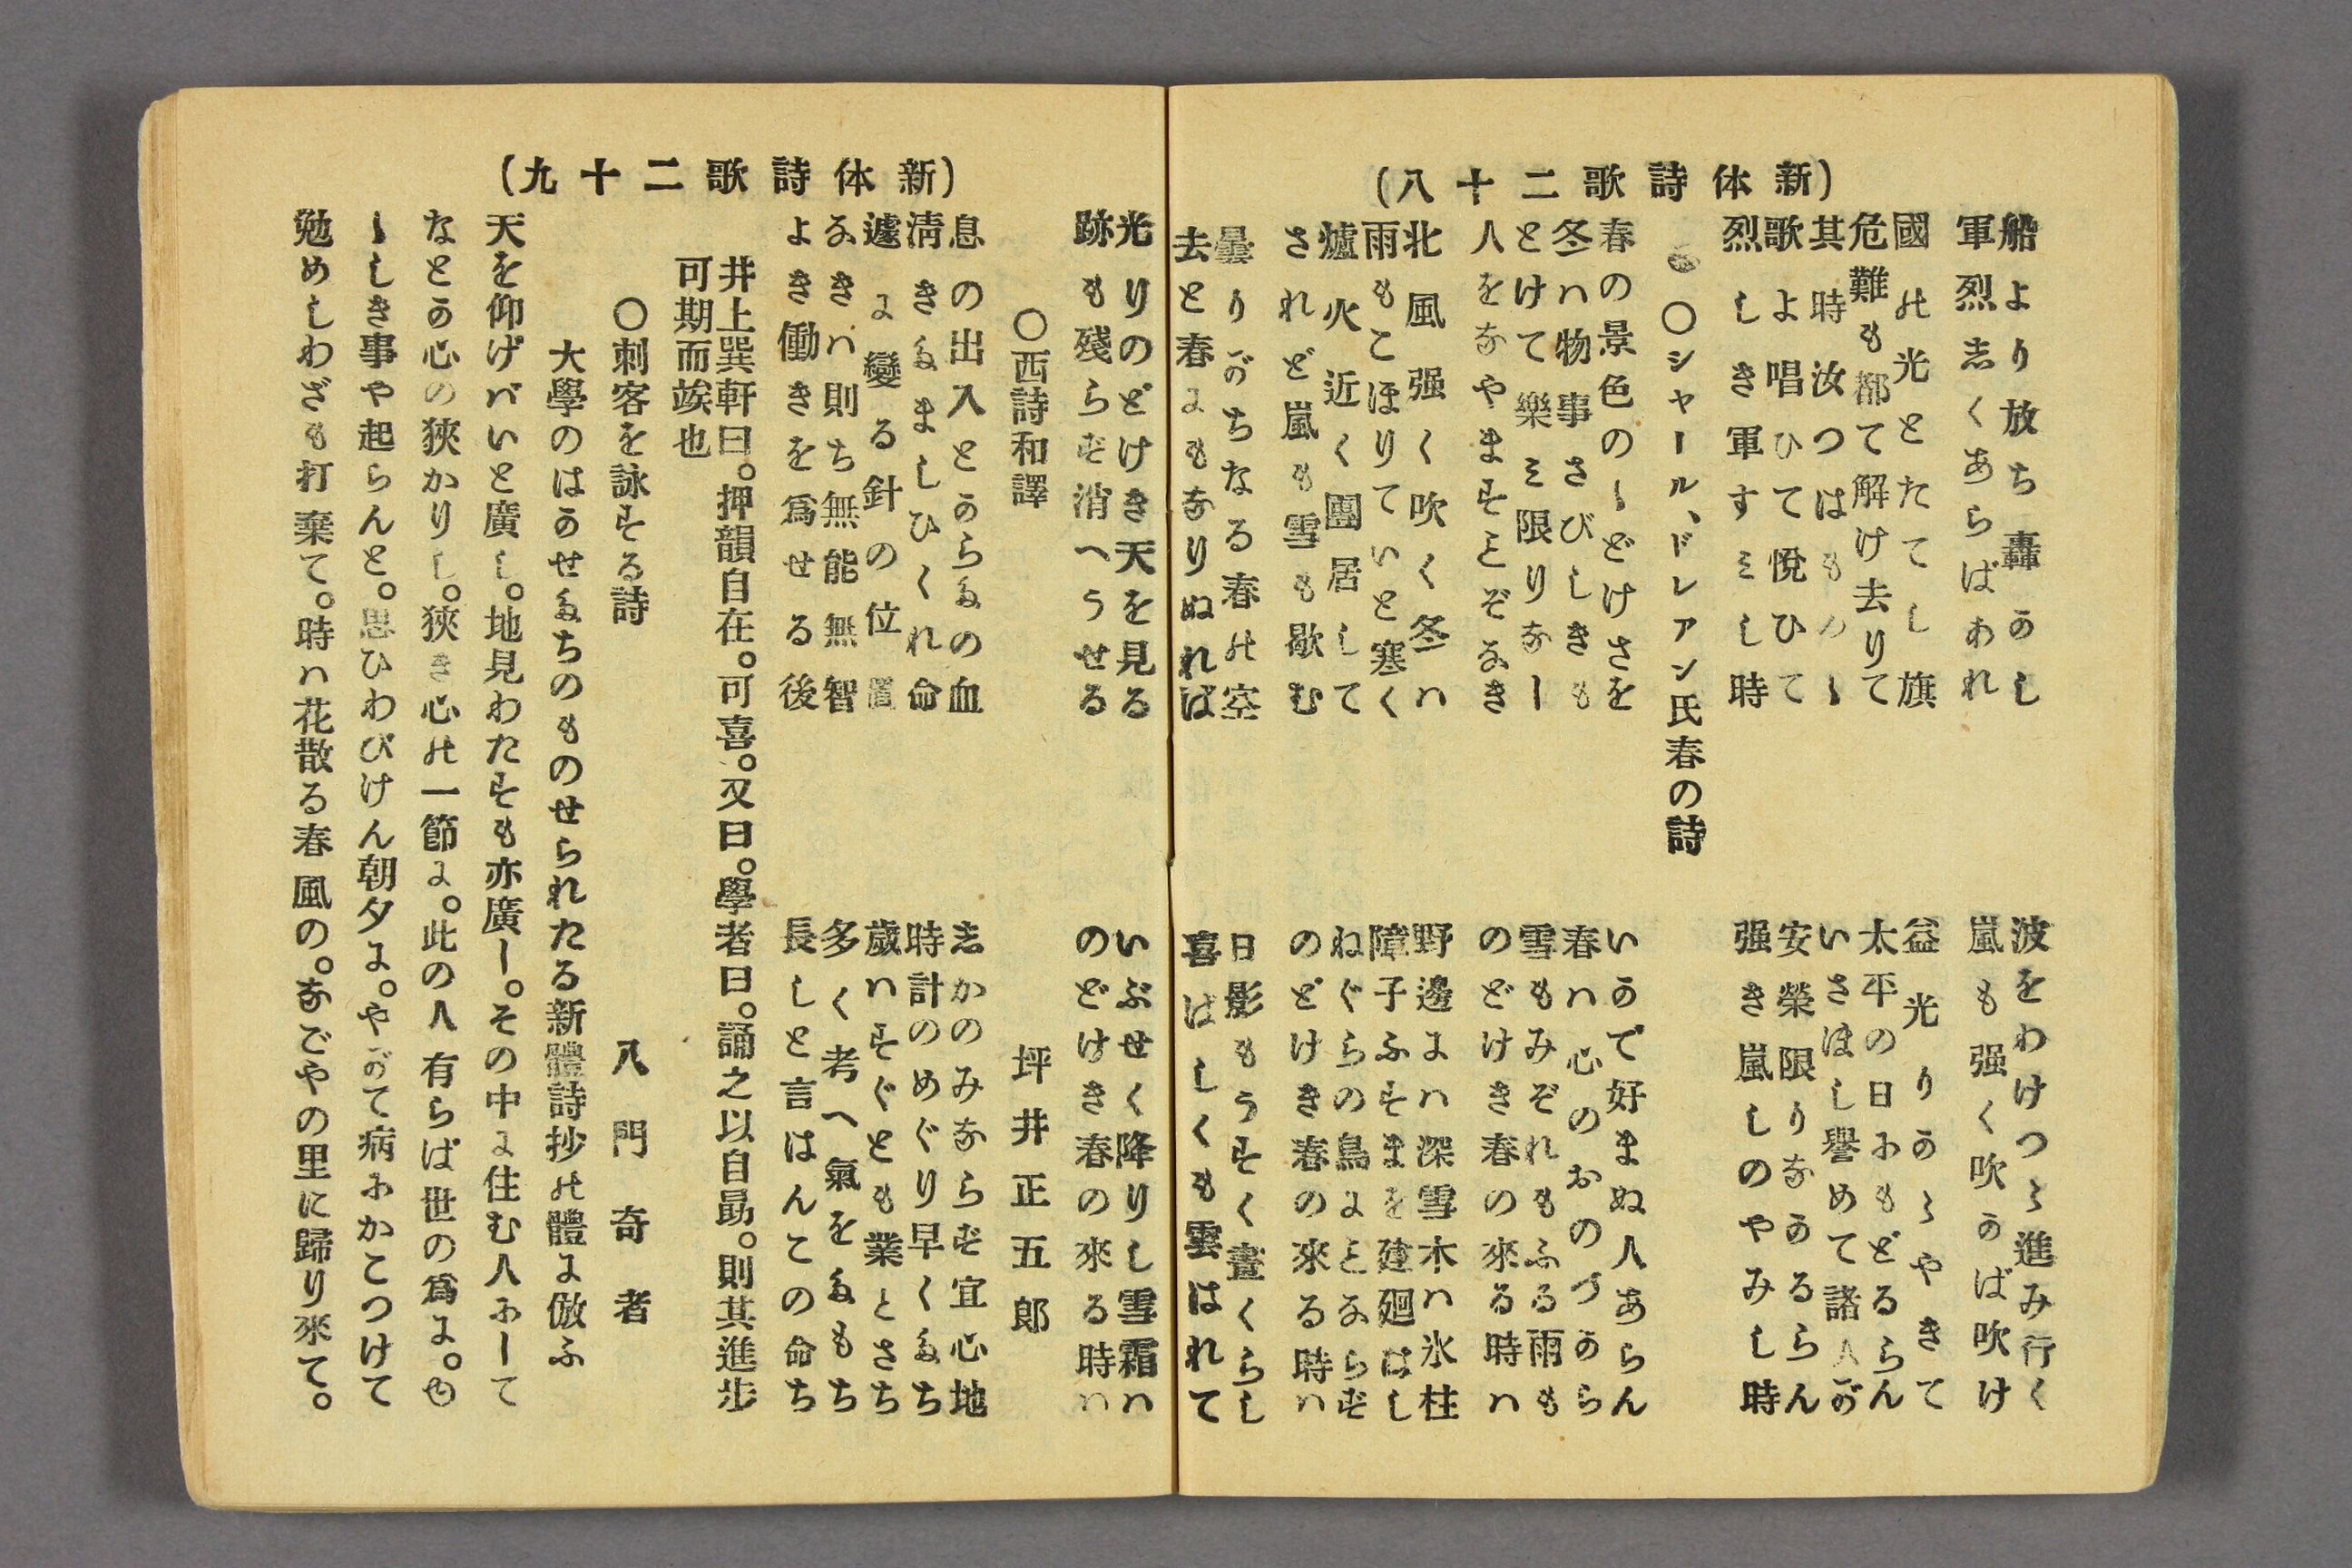 (新体詩歌二十八)
船より放ち轟かし
波をわけつゝ進み行く
軍烈しくあらばあれ
嵐も强く吹かば吹け
國の光とたてし旗
益光りかゝやきて
危難も都て解け去りて
太平の日にもどるらん
其時汝つはものゝ
いさほし譽めて諸人が
歌よ唱ひて悅ひて
安榮限りなかるらん
烈しき軍すミし時
强き嵐しのやみし時
〇シヤール、ドレアン氏春の詩
春の景色のゝどけさを
いかで好まぬ人あらん
冬ハ物事さびしきも
春ハ心のおのづから
とけて樂ミ限りなー
雪もみぞれもふる雨も
人をなやますことぞなき
のどけき春の來る時ハ
北風强く吹く冬ハ
野邊にハ深雪木ハ氷柱
雨もこほりていと寒く
障子ふすまを建廻はし
爐火近く團居して
ねぐらの鳥にことならず
されど嵐も雪も歇む
のどけき春の來る時ハ
曇りがちなる春の空
日影もうすく晝くらし
去と春にもなりぬれば
喜ばしくも雲はれて
光りのどけき天を見る
いぶせく降りし雪霜ハ
跡も殘らず消へうせる
のどけき春の來る時ハ
(新体詩歌二十九)
〇西詩和譯
坪井正五郎
息の出入とからだの血
志かのみならず宜心地
淸きたましひくれ命
時計のめぐり早くたち
遽に變る針の位置
歲ハすぐとも業とさち
なきハ則ち無能無智
多く考へ氣をたもち
よき働きを爲せる後
長しと言はんこの命ち
井上巽軒曰。押韻自在。可喜。又曰。學者曰。誦之以自勗。則其進步
可期而竢也
〇刺客を詠する詩
八門奇者
大學のはかせたちのものせられたる新體詩抄の體に倣ふ
天を仰げバいと廣し。地見わたすも亦廣ー。その中に住む人にーて
なとか心の狹かりし。狹き心の一節に。此の人有らば世の爲に。ゆ
ゝしき事や起らんと。思ひわびけん朝夕に。やがて病にかこつけて
勉めしわざも打棄て。時ハ花散る春風の。なごやの里に歸り來て。